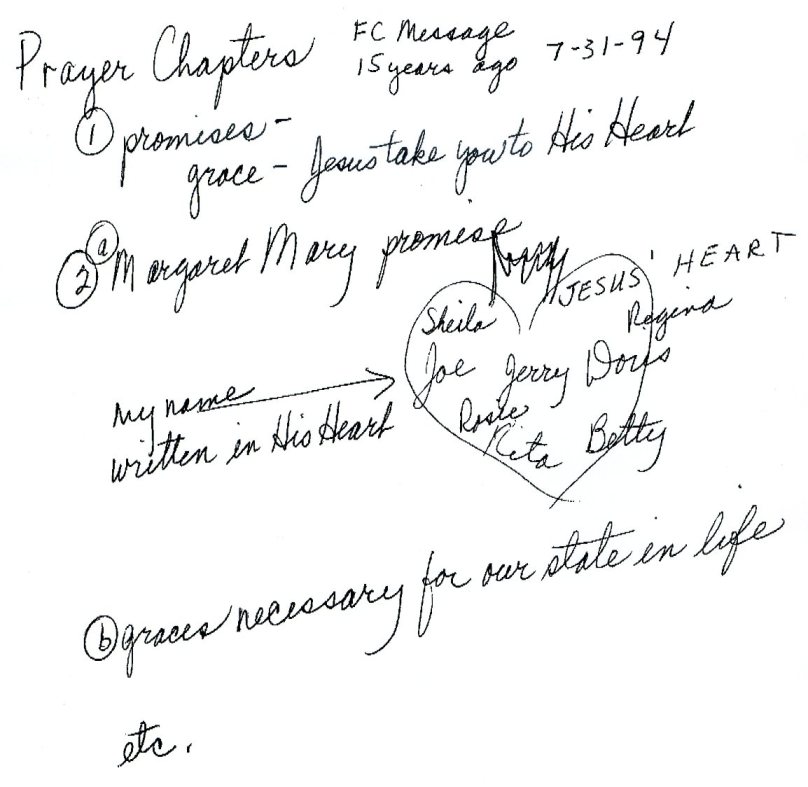 Prayer Chapters FC Message 7-31-94
15 years ago
① promises -
grace - Jesus take you to His Heart
② ⓐ Margaret Mary promise
JESUS' HEART
Sheila Regina
Joe Jerry Doris
my name
Rosie
written in His Heart
Rita Betty
ⓑ graces necessary for our state in life
etc.